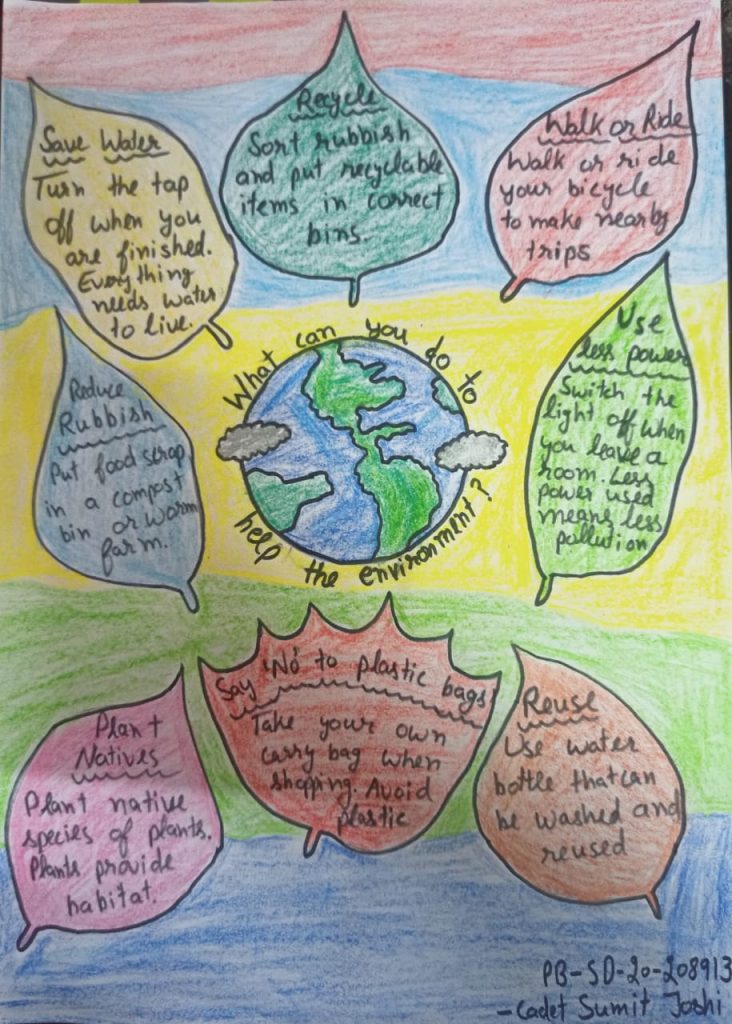 Save Water
Turn the tap
off when you
are finished.
Everything
needs water
to live.
Recycle
Sort rubbish
and put recyclable
items in correct
bins.
Walk or Ride
Walk or ride
your bicycle
to make nearby
trips
Reduce
Rubbish
Put food scrap
in a compost
bin or worm
farm.
What can you do to
help the environment?
Use
less power
Switch the
light off when
you leave a
room. Less
power used
means less
pollution
Plant
Natives
Plant native
species of plants.
Plants provide
habitat.
Say 'No' to plastic bags
Take your own
carry bag when
shopping. Avoid
plastic
Reuse
Use water
bottle that can
be washed and
reused
PB-SD-20-208913
-Cadet Sumit Joshi